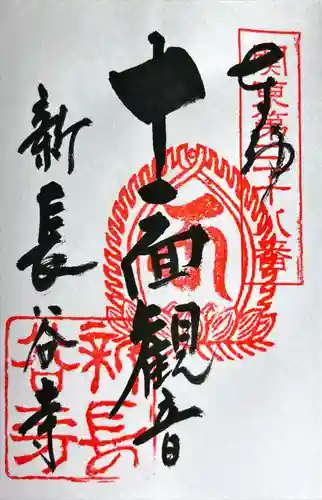 奉拝
関東第二十八番
十一面観音
新長谷寺
新長
谷寺